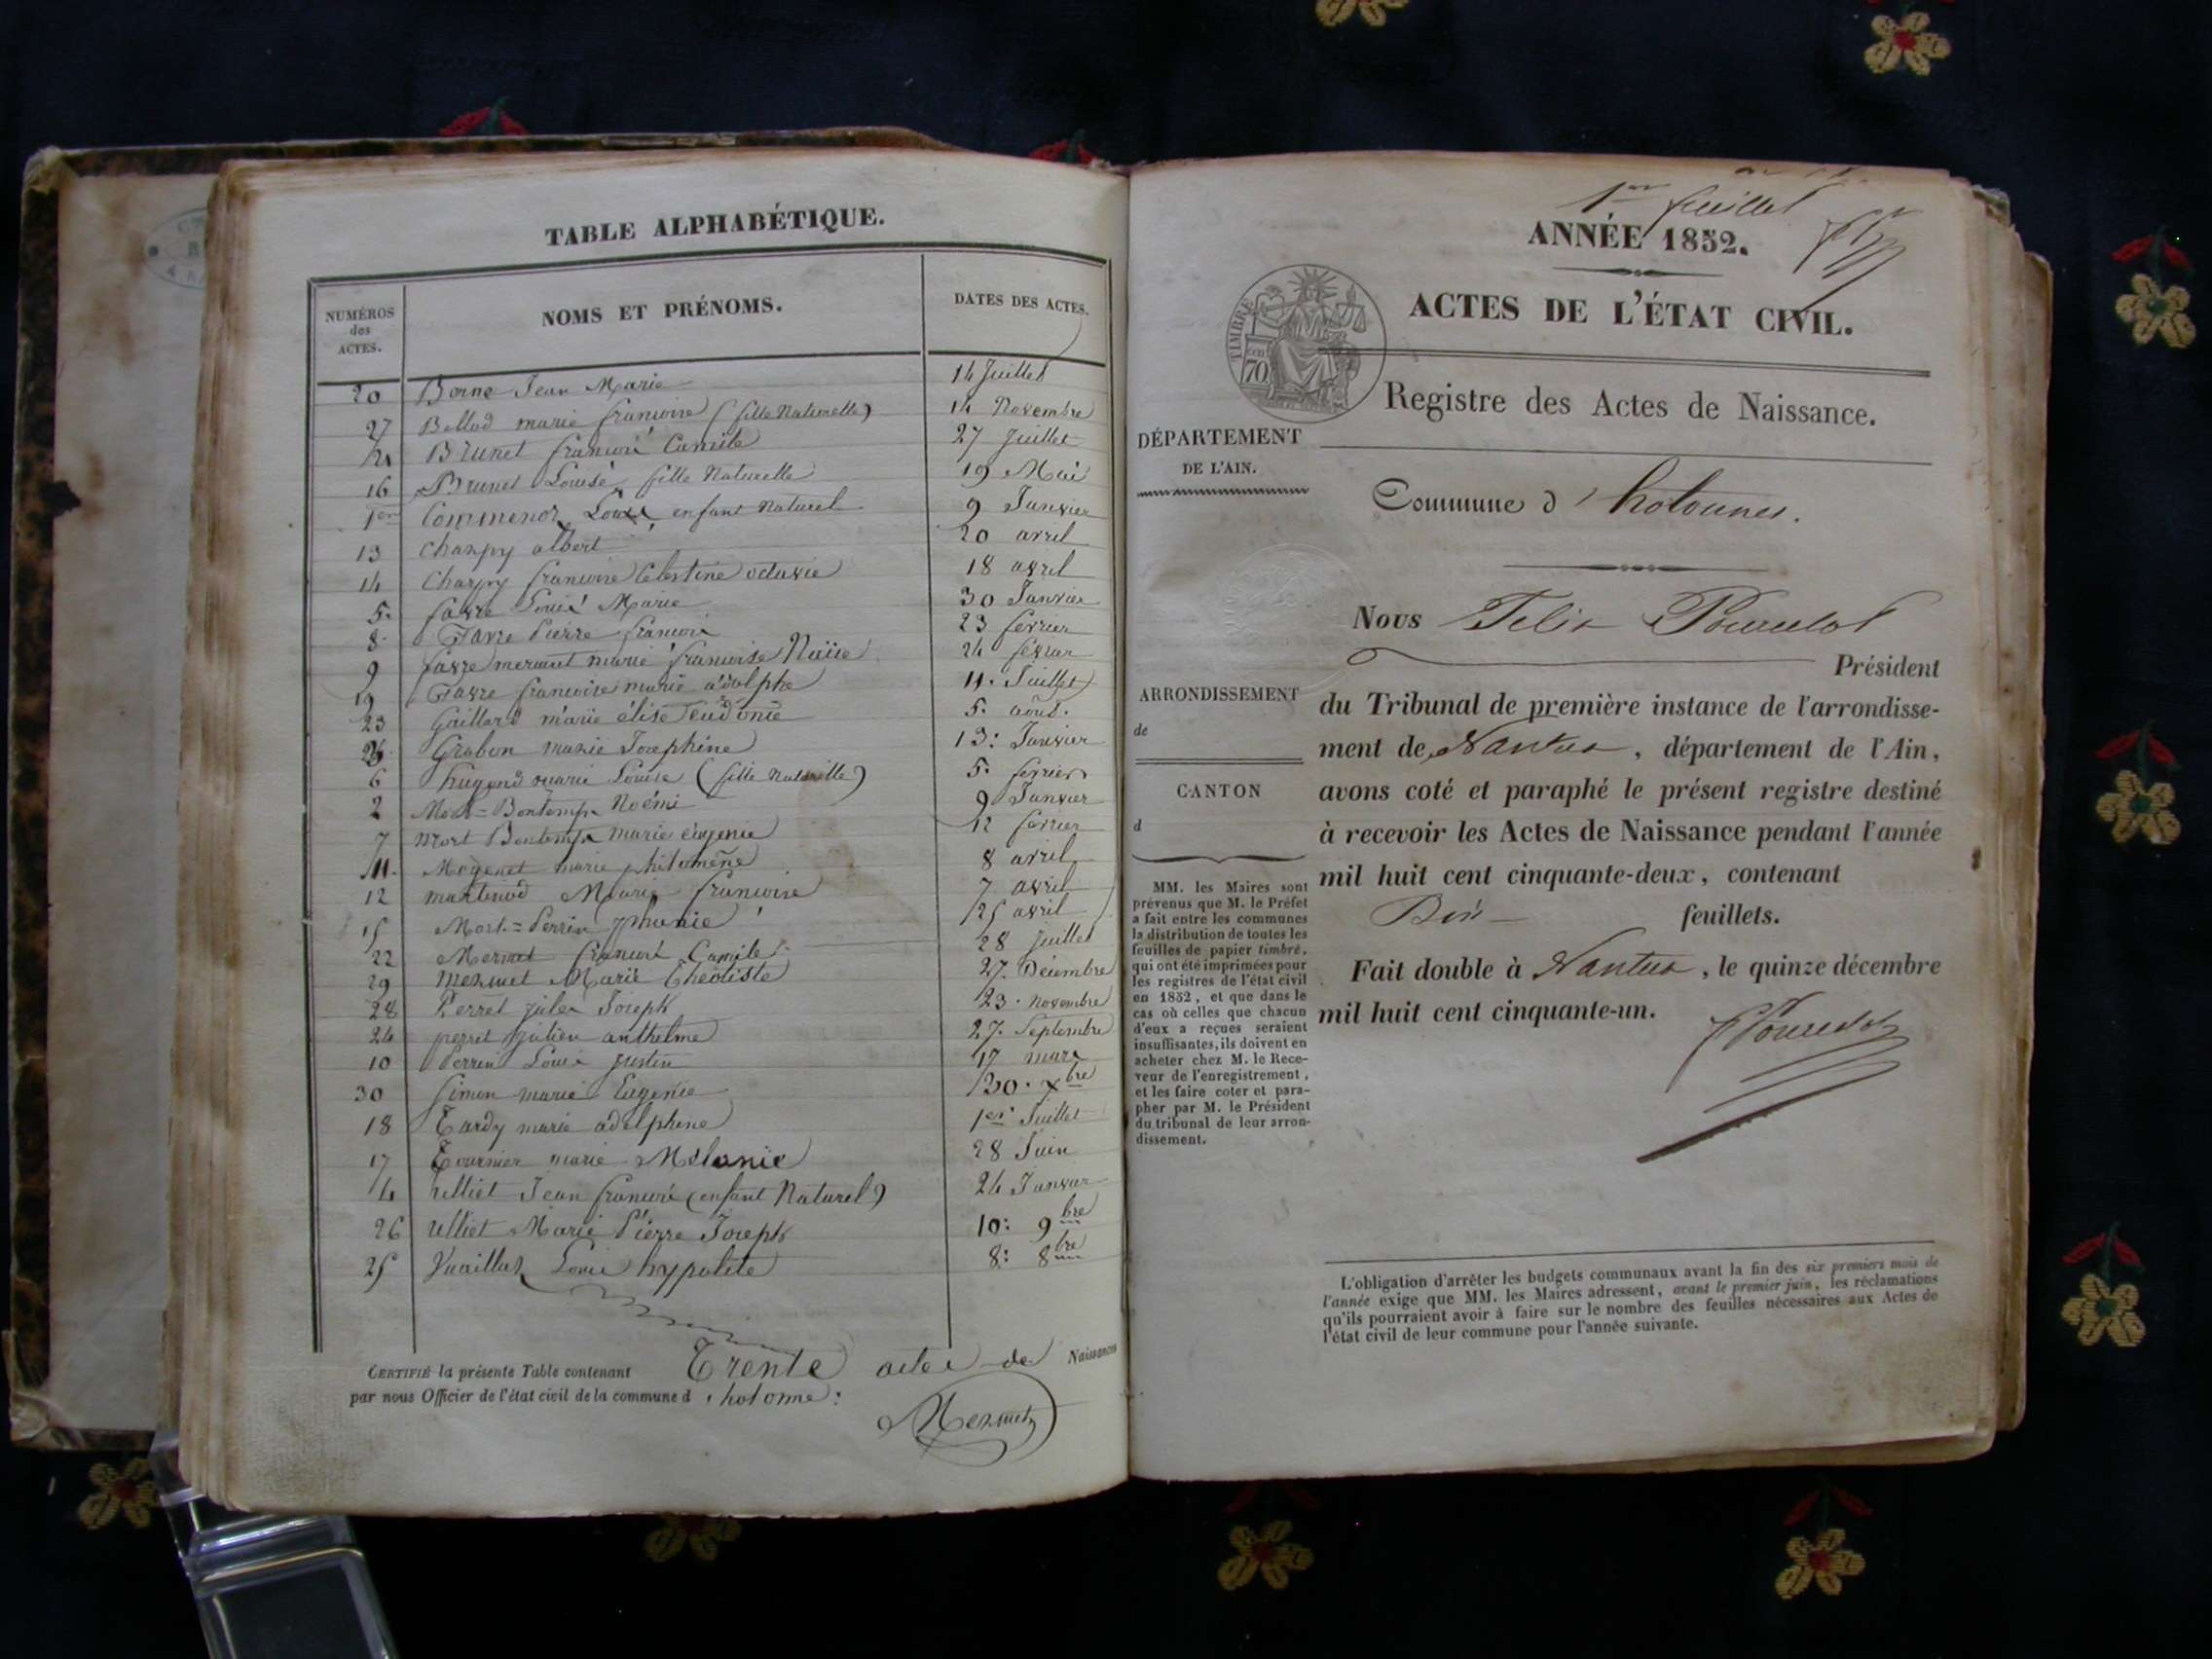 TABLE ALPHABÉTIQUE.
NUMÉROS des ACTES. NOMS ET PRÉNOMS. DATES DES ACTES.
20 Borne Jean Marie 14 Juillet
27 Bellod marie françoise (fille Naturelle) 14 Novembre
21 Brunet françoi Camile 27 Juillet
16 Brunet Louise fille Naturelle 19 Mai
1er Louis enfant Naturel 9 Janvier
13 Charpy albert 20 avril
14 Charpy francoise Celestine octavie 18 avril
5. favre Loui Marie 30 Janvier
8. Favre Pierre francoi 23 fevrier
9 favre mermet marie francoise 24 fevrier
19 Favre francoise marie adolphe 11. Juillet
23 Gaillard marie élise 5. août.
Grabon marie Josephine 13: Janvier
6 hugond marie Louise (fille naturelle) 5. fevrier
2 Mort=Bontemps Noémi 9 Janvier
7 Mort Bontemps marie eugenie 12 fevrier
11. marie philomène 8 avril
12 martinod Marie francoise 7 avril
15 Mort=Perrin 25 avril
22 Mermet francoi Camile 28 Juillet
29 Mermet Marie Théotiste 27. Décembre
28 Perret jules Joseph 23. Novembre
24 perret julien anthelme 27. Septembre
10 Perrin Loui justin 17 mars
30 Simon marie Eugenie 30. xbre
18 Tardy marie adelphine 1er Juillet
17 Tournier marie Mélanie 28 Juin
4 Jean francoi (enfant Naturel) 24 Janvier
26 Ulliet Marie Pierre Joseph 10: 9bre
25 Vuaillat Loui hypolite 8: 8bre
CERTIFIÉ la présente Table contenant Trente actes de Naissances
par nous Officier de l'état civil de la commune d'hotonne:
Mermet
1er feuillet
ANNÉE 1852.
ACTES DE L'ÉTAT CIVIL.
TIMBRE
70
Registre des Actes de Naissance.
DÉPARTEMENT
DE L'AIN.
Commune d'hotonnes.
Nous Felix Pourcelot
Président
ARRONDISSEMENT
de
CANTON
d
du Tribunal de première instance de l'arrondisse-
ment de Nantua, département de l'Ain,
avons coté et paraphé le présent registre destiné
à recevoir les Actes de Naissance pendant l'année
mil huit cent cinquante-deux, contenant
feuillets.
Fait double à Nantua, le quinze décembre
mil huit cent cinquante-un.
MM. les Maires sont
prévenus que M. le Préfet
a fait entre les communes
la distribution de toutes les
feuilles de papier timbré,
qui ont été imprimées pour
les registres de l'état civil
en 1852, et que dans le
cas où celles que chacun
d'eux a reçues seraient
insuffisantes, ils doivent en
acheter chez M. le Rece-
veur de l'enregistrement,
et les faire coter et para-
pher par M. le Président
du tribunal de leur arron-
dissement.
L'obligation d'arrêter les budgets communaux avant la fin des six premiers mois de
l'année exige que MM. les Maires adressent, avant le premier juin, les réclamations
qu'ils pourraient avoir à faire sur le nombre des feuilles nécessaires aux Actes de
l'état civil de leur commune pour l'année suivante.